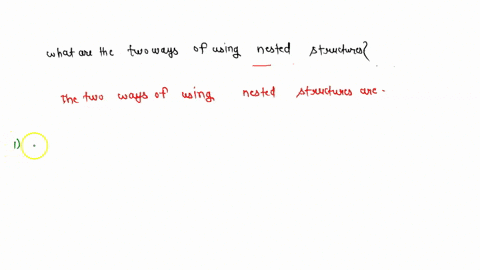 what are the two ways of using nested structures?
The two ways of using nested structures are.
1)